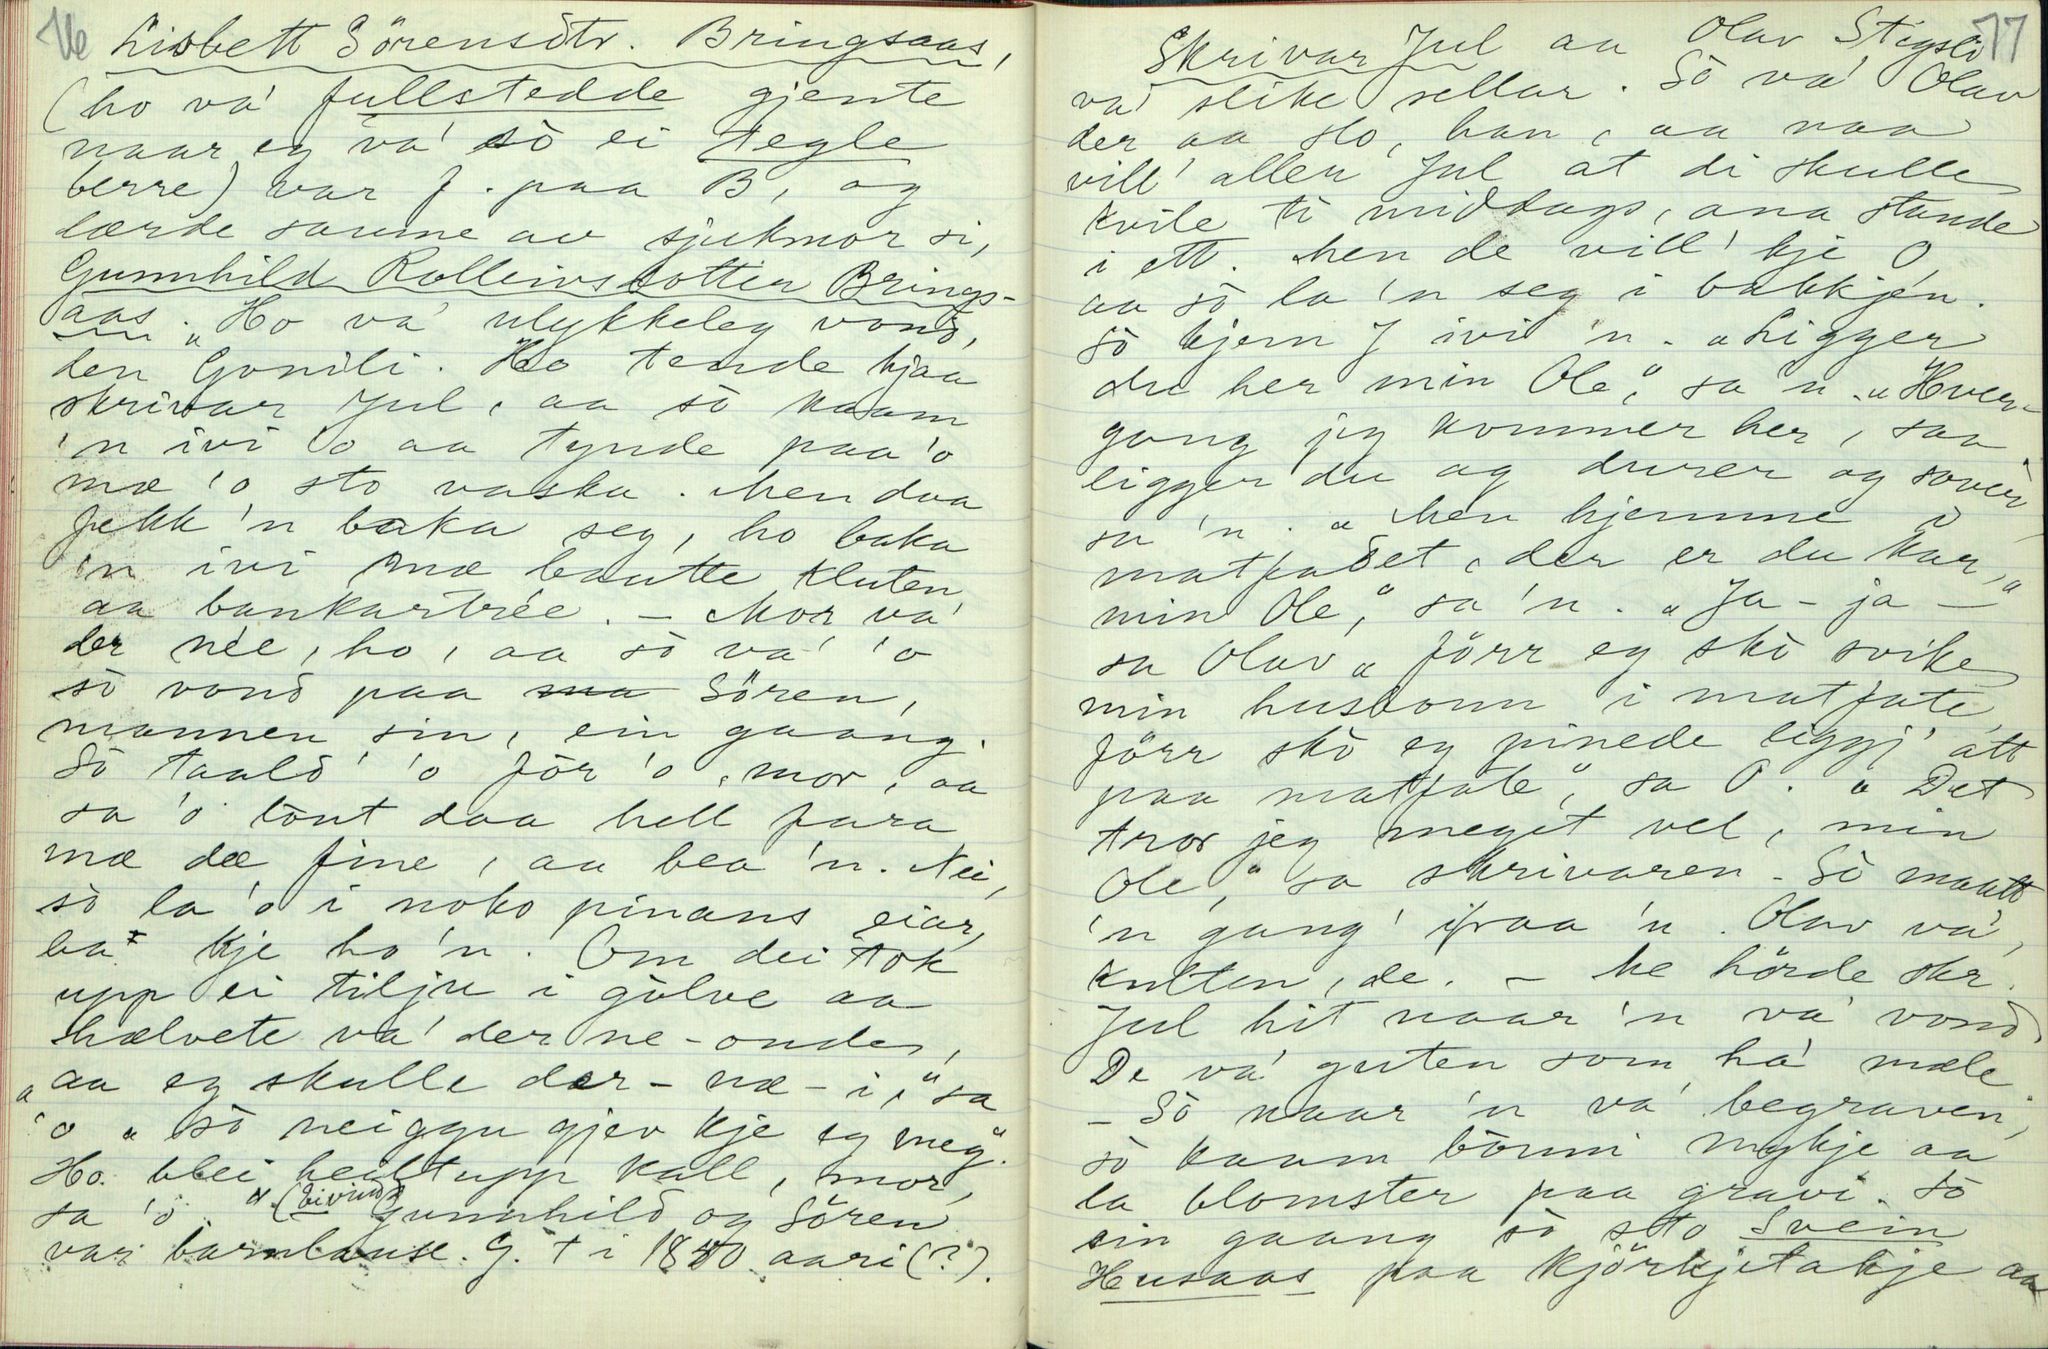 76
Lisbett Sörensdtr. Bringsaas,
(ho va' fullstedde gjente
naar eg va' sò ei tegle
berre) var f. paa B, og
lærde saume av sjukmor si,
Gunnhild Rolleivsdotter Brings-
aas. "Ho va' ulykkeleg vond,
den Gonili. Ho tende hjaa
skrivar Jul, aa sò kaam
'n ivi 'o aa tynde paa 'o
mæ 'o sto vaska. Men daa
fekk 'n baka seg, ho baka
'n ivi mæ blautte kluten
aa bankartrée. – Mor va'
der née, ho, aa sò va' 'o
sò vond paa Sören,
mannen sin, ein gaang.
Sò taald' 'o för 'o, mor, aa
sa 'o lönt daa hell fara
mæ dæ fine, aa bea 'n. Nei,
sò la 'o i noko pinans eiar,
ba kje ho 'n. Om dei tok
upp ei tilju i gölve aa
hælvete va' der ne-onde,
"aa eg skulle der-næ-i," sa
'o "sò neiggu gjev kje eg meg".
Ho blei heiltupp kall, mor,
sa 'o." (Eivind)
Gunnhild og Sören
var barnlause. G. † i 1840 aari (?).
77
Skrivar Jul aa Olav Stigsli
va' slike sellar. Sò va' Olav
der aa slo, han, aa naa
vill' allen Jul at di skulle
kvile ti middags, ana stande
i ett. Men de vill' kje O,
aa sò la 'n seg i bakkjén.
Sò kjem J ivi 'n. "Ligger
du her min Ole," sa 'n. "Hver-
gang jeg kommer her, saa
ligger du og durer og sover,
sa 'n. "Men hjemme i
matfadet, der er du kar,"
min Ole," sa 'n. "Ja-ja –"
sa Olav "förr eg skò svike
min husbonn i matfate,
förr skò eg pinede leggj' att
paa matfate," sa O. "Det
tror jeg meget vel, min
Ole," sa skrivaren. Sò maatt
'n gang' ifraa 'n. Olav va'
knllen, de. – Me hörde skr.
Jul hit naar 'n va' vond.
De va' guten som ha' mæle
– Sò naar 'n va' begraven,
sò kaam bönni mykje aa
la blomster paa gravi. Sò
ein gaang sò sto Svein
Husaas paa kjörkjetakje aa